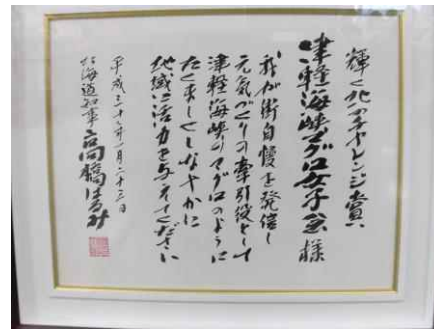 輝く北のチャレンジ賞
津軽海峡マグロ女子会 様
我が街自慢を発信し
元気づくりの牽引役として
津軽海峡のマグロのように
たくましくしなやかに
地域に活力を与えてください
平成三十年一月二十三日
北海道知事 高橋はるみ